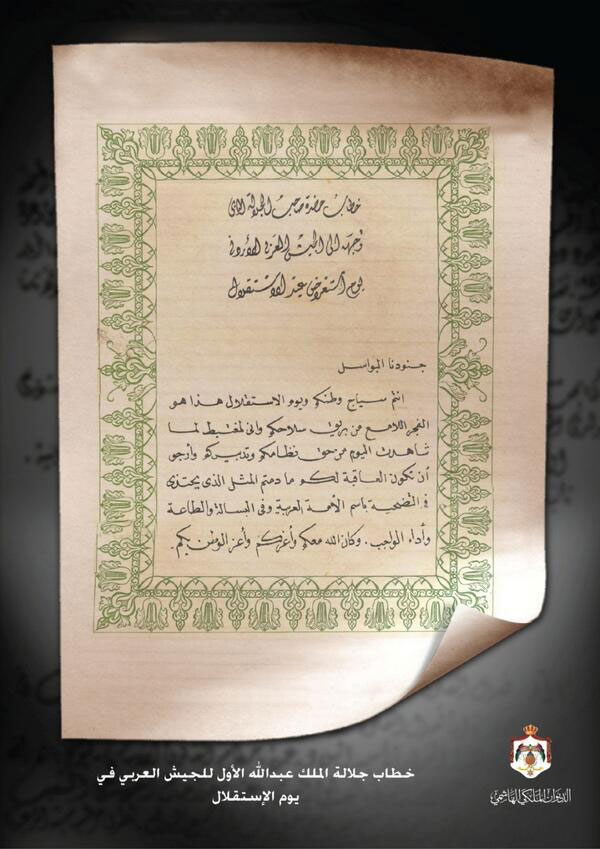 خطاب حضرة صاحب الجلالة الذى
وجهه الى الجيش العربى الأردنى
يوم استعراض عيد الاستقلال
جنودنا البواسل
انتم سياج وطنكم ويوم الاستقلال هذا هو
الفجر اللامع من بريق سلاحكم وانى لمغتبط لما
شاهدت اليوم من حسن نظامكم وتدريبكم وأرجو
أن تكون العاقبة لكم ما دمتم المثل الذى يحتذى
فى التضحية باسم الأمة العربية وفى البسالة والطاعة
وأداء الواجب. وكان الله معكم وأعزكم وأعز الوطن بكم.
خطاب جلالة الملك عبدالله الأول للجيش العربي في
يوم الإستقلال
الديوان الملكي الهاشمي